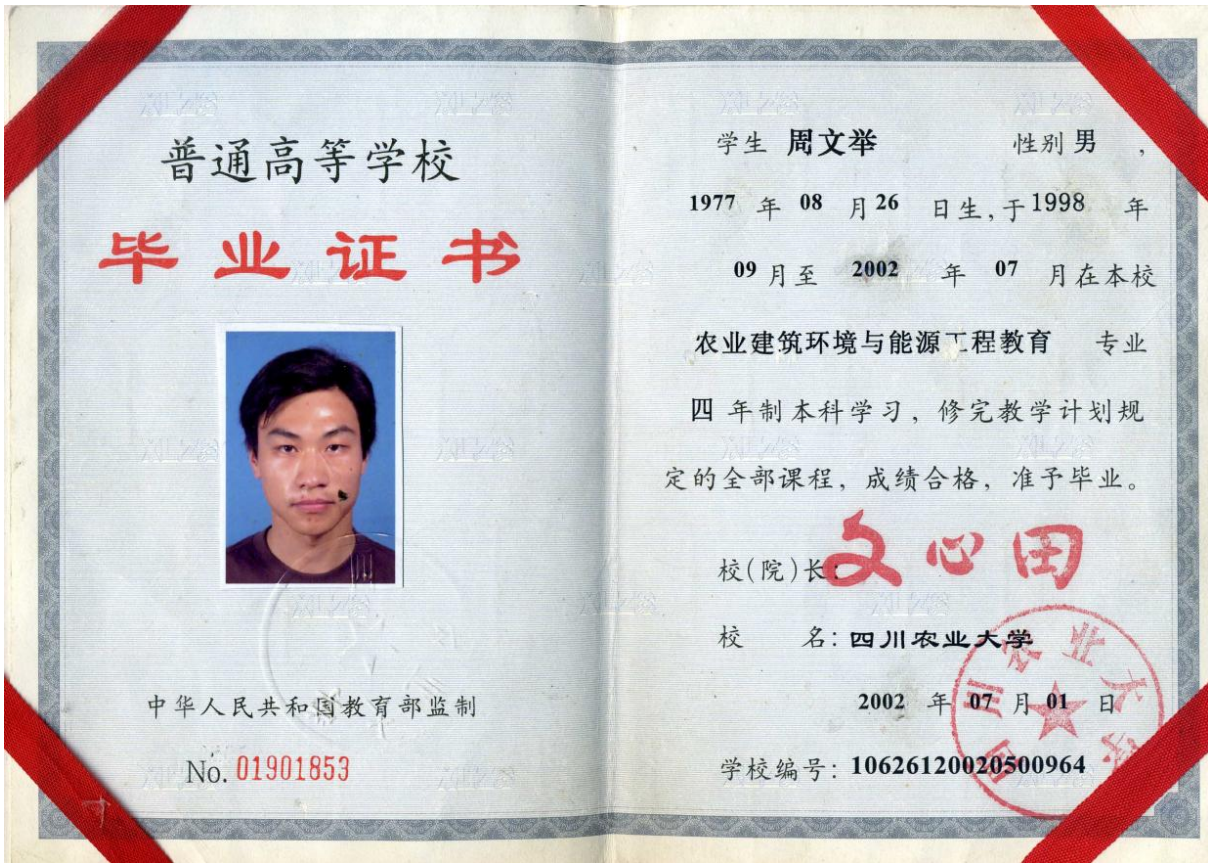 普通高等学校
毕业证书
中华人民共和国教育部监制
No. 01901853
学生 周文举 性别 男 ,
1977 年 08 月 26 日生,于 1998 年
09 月至 2002 年 07 月在本校
农业建筑环境与能源工程教育 专业
四 年制本科学习，修完教学计划规
定的全部课程，成绩合格，准予毕业。
校(院)长: 文心田
校 名: 四川农业大学
2002 年 07 月 01 日
学校编号: 106261200205009​64
四川农业大学